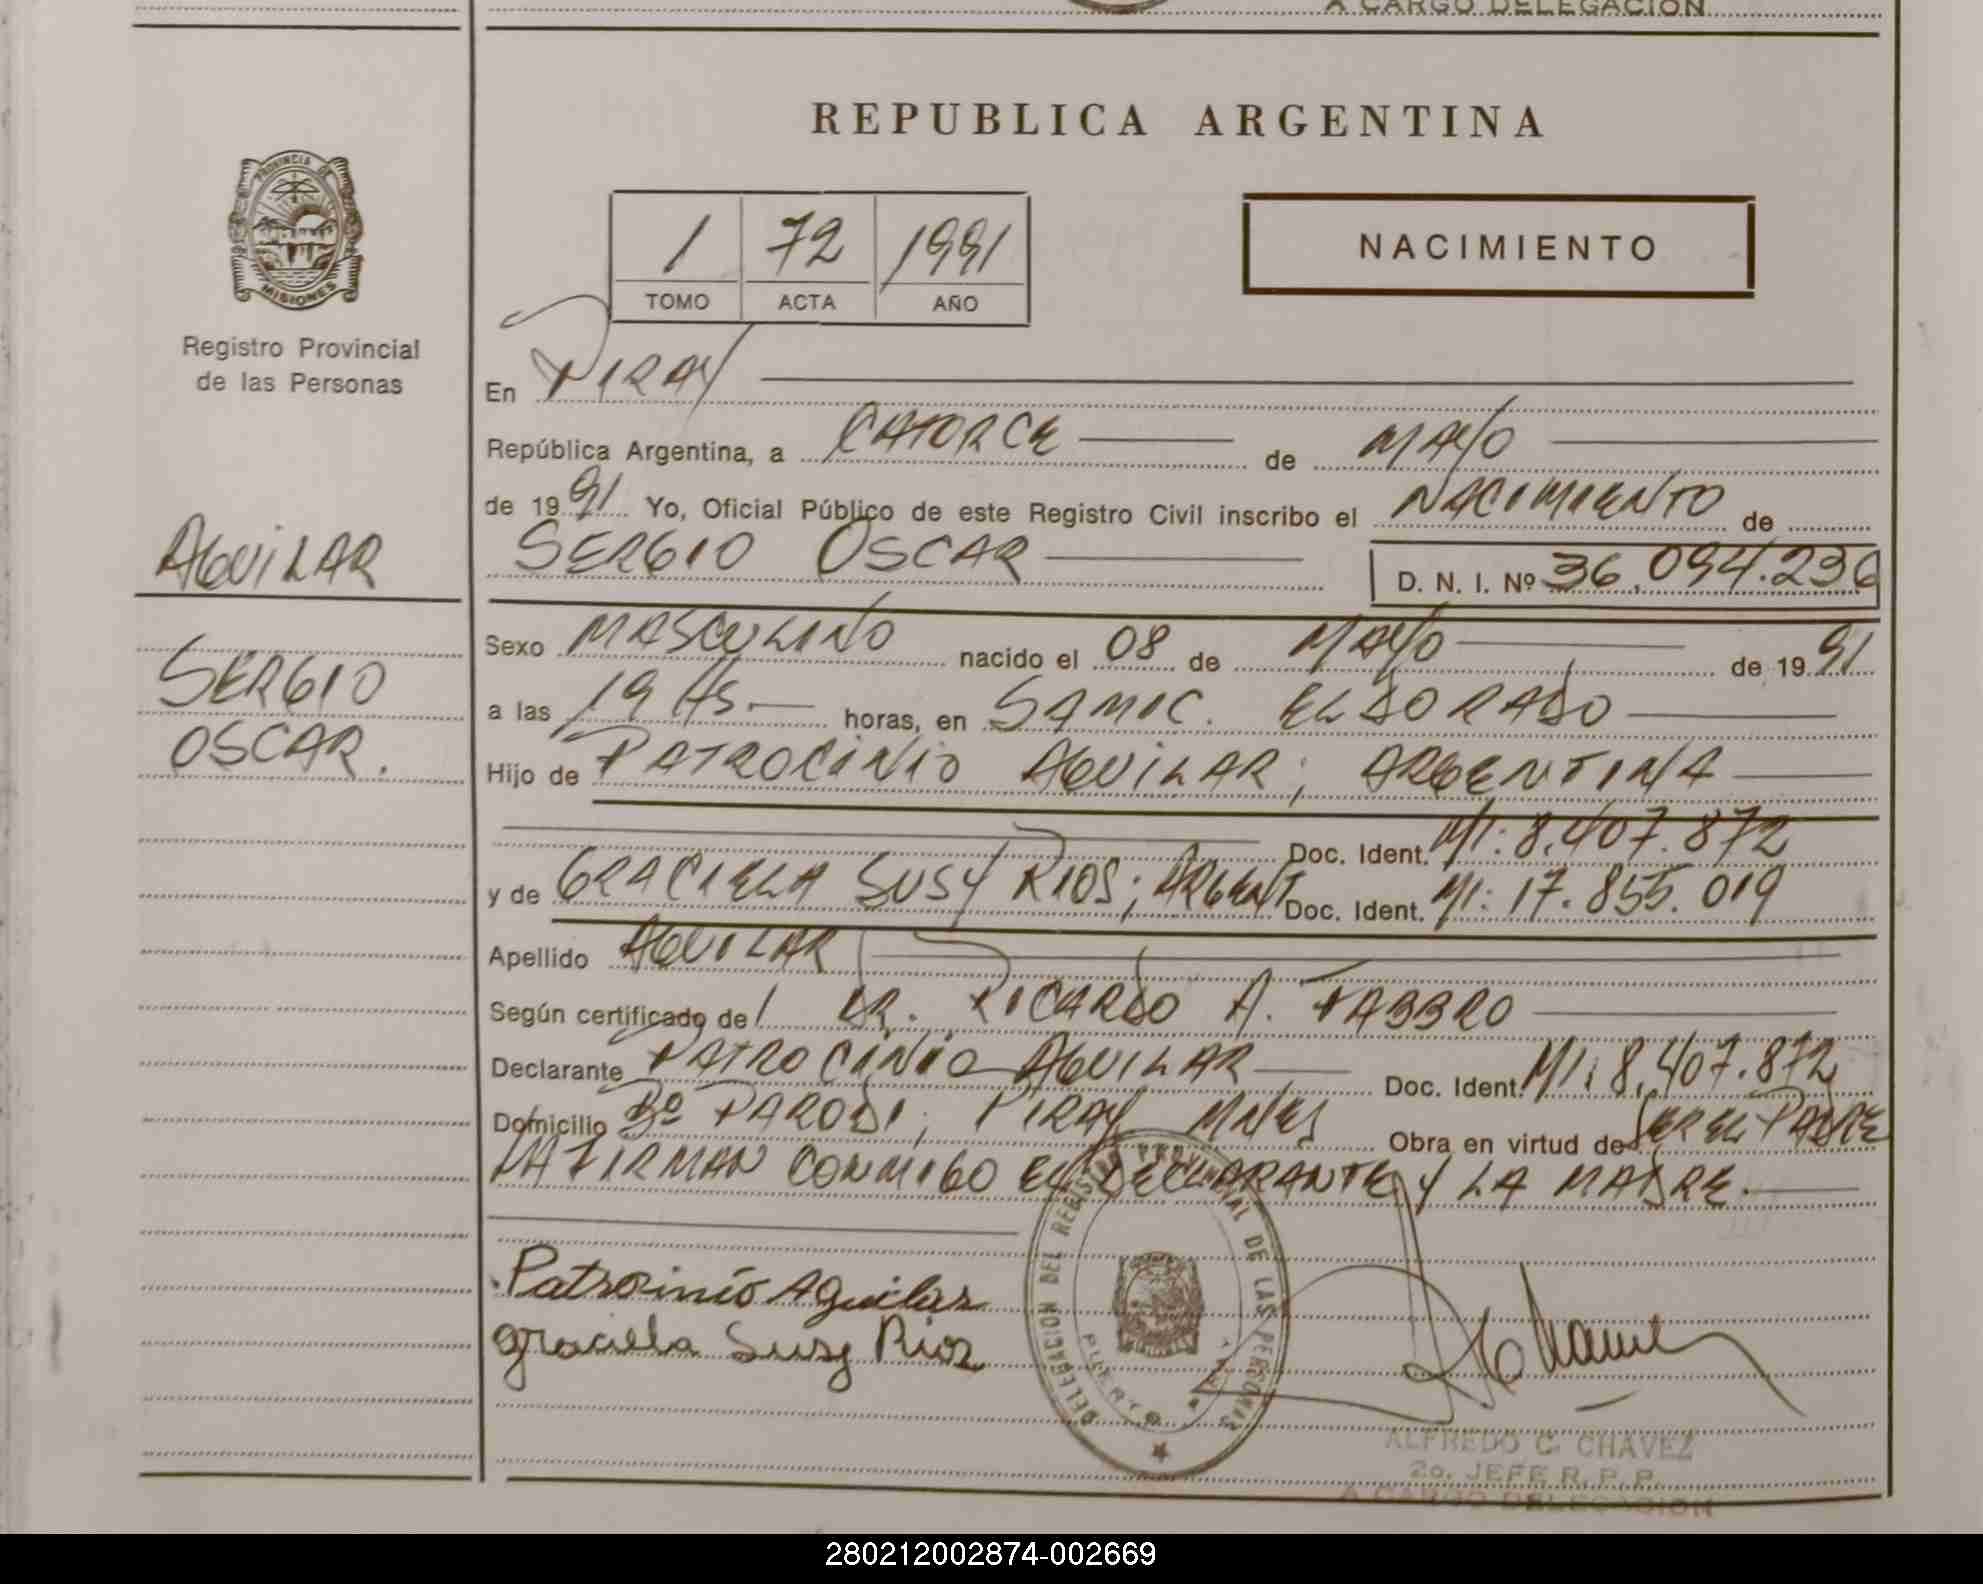 A CARGO DELEGACION
REPUBLICA ARGENTINA
PROVINCIA DE
MISIONES
Registro Provincial
de las Personas
1 72 1991
TOMO ACTA AÑO
NACIMIENTO
En PIRAY
República Argentina, a CATORCE de MAYO
de 1991 Yo, Oficial Público de este Registro Civil inscribo el NACIMIENTO de
SERGIO OSCAR D. N. I. Nº 36.094.236
AGUILAR
SERGIO
OSCAR.
Sexo MASCULINO nacido el 08 de MAYO de 1991
a las 19 HS. horas, en SAMIC. ELDORADO
Hijo de PATROCINIO AGUILAR; ARGENTINA
Doc. Ident. MI: 8.407.872
y de GRACIELA SUSY RIOS; ARGENT Doc. Ident. MI: 17.855.019
Apellido AGUILAR
Según certificado del DR. RICARDO A. FABBRO
Declarante PATROCINIO AGUILAR Doc. Ident. MI: 8.407.872
Domicilio Bº PARODI; PIRAY MNES Obra en virtud de SER EL PADRE
FIRMAN CONMIGO EL DECLARANTE Y LA MADRE.
Patrocinio Aguilar
Graciela Susy Rios
DELEGACION DEL REGISTRO PROVINCIAL DE LAS PERSONAS
PUERTO PIRAY
ALFREDO C. CHAVEZ
2o. JEFE R. P. P.
A CARGO DELEGACION
280212002874-002669